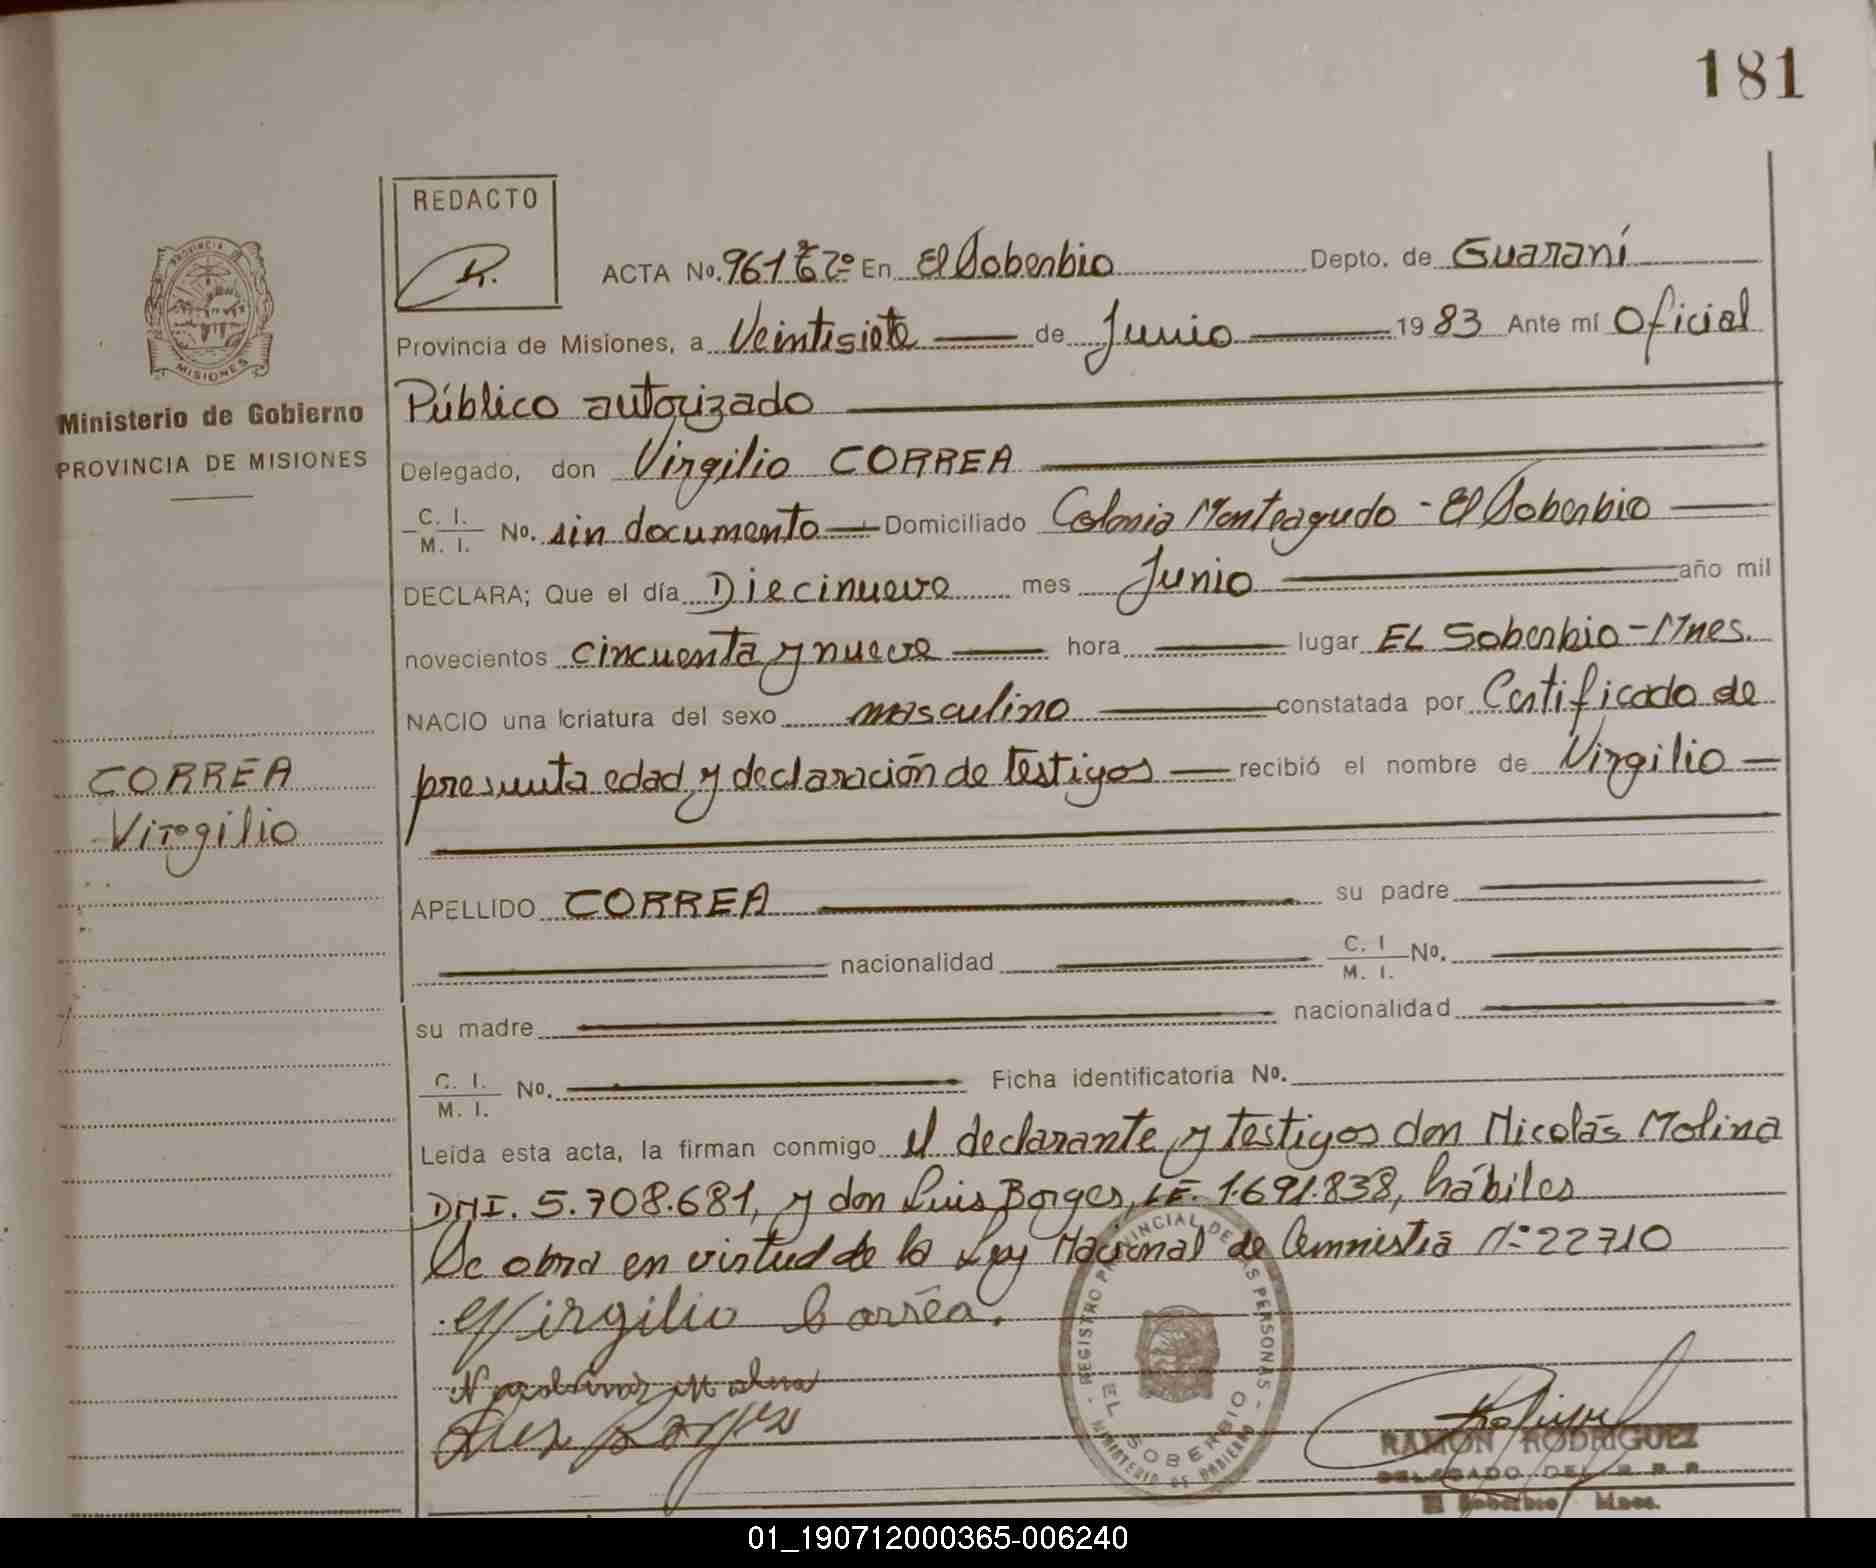 181
REDACTO
R.
ACTA No. 961 Tº 7º En El Soberbio Depto. de Guaraní
Provincia de Misiones, a Veintisiete de Junio 1983 Ante mí Oficial
Público autorizado
Delegado, don Virgilio CORREA
C. I.
M. I. No. sin documento Domiciliado Colonia Monteagudo - El Soberbio
DECLARA; Que el día Diecinueve mes Junio año mil
novecientos cincuenta y nueve hora lugar EL Soberbio - Mnes.
NACIO una criatura del sexo masculino constatada por Certificado de
presunta edad y declaración de testigos recibió el nombre de Virgilio
APELLIDO CORREA su padre
nacionalidad C. I
M. I. No.
su madre nacionalidad
C. I.
M. I. No. Ficha identificatoria No.
Leída esta acta, la firman conmigo el declarante y testigos don Nicolás Molina
DNI. 5.708.681, y don Luis Borges, LE. 1.691.838, hábiles
Se obra en virtud de la Ley Nacional de Amnistía Nº 22710
Virgilio Corrêa.
Luis Borges
PROVINCIA
MISIONES
Ministerio de Gobierno
PROVINCIA DE MISIONES
CORREA
Virgilio
REGISTRO PROVINCIAL DE LAS PERSONAS
EL SOBERBIO
MINISTERIO DE GOBIERNO
RAMON RODRIGUEZ
DELEGADO DEL R. P. P.
El Soberbio Mnes.
01_190712000365-006240